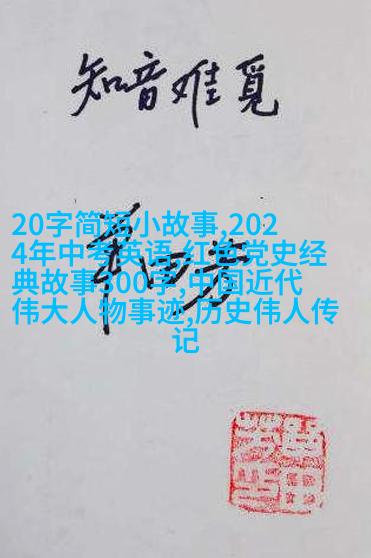 知音难觅
20字简短小故事,202
4年中考英语,红色党史经
典故事300字,中国近代
伟大人物事迹,历史伟人传
记